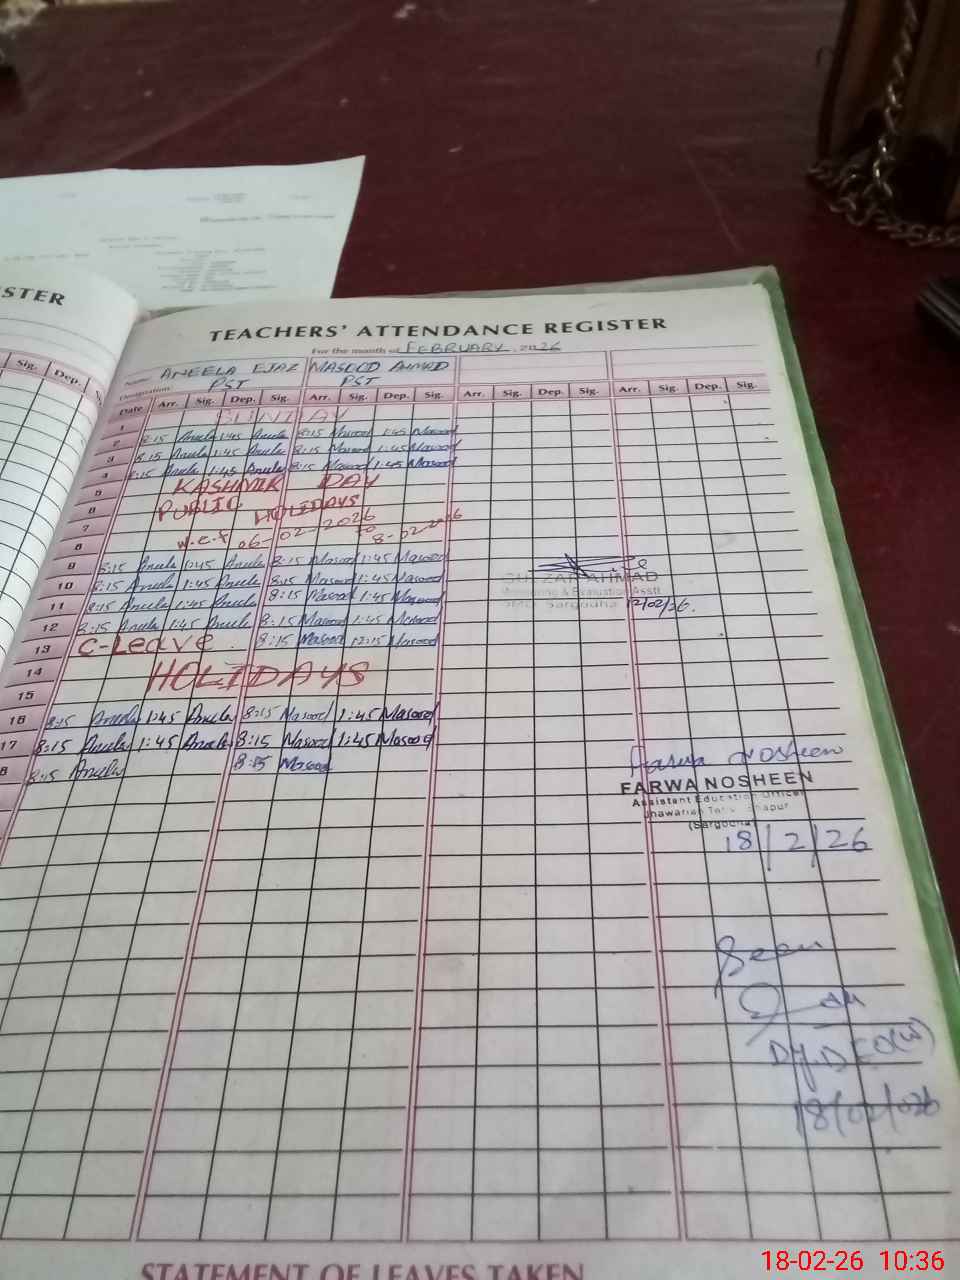 STER
Sig. Dep.
TEACHERS' ATTENDANCE REGISTER
For the month of FEBRUARY 2026
Name ANEELA EJAZ MASOOD AHMED
Designation PST PST
Date Arr. Sig. Dep. Sig. Arr. Sig. Dep. Sig. Arr. Sig. Dep. Sig. Arr. Sig. Dep. Sig.
1 SUNDAY
2 8:15 Aneela 1:45 Aneela 8:15 Masood 1:45 Masood
3 8:15 Aneela 1:45 Aneela 8:15 Masood 1:45 Masood
4 8:15 Aneela 1:45 Aneela 8:15 Masood 1:45 Masood
5 KASHMIR DAY
6 PUBLIC HOLIDAYS
7 w.e.f 06-02-2026 to 8-02-2026
8
9 8:15 Aneela 1:45 Aneela 8:15 Masood 1:45 Masood
10 8:15 Aneela 1:45 Aneela 8:15 Masood 1:45 Masood
11 8:15 Aneela 1:45 Aneela 8:15 Masood 1:45 Masood
12 8:15 Aneela 1:45 Aneela 8:15 Masood 1:45 Masood
13 C-Leave 8:15 Masood 12:15 Masood
14 HOLIDAYS
15
16 8:15 Aneela 1:45 Aneela 8:15 Masood 1:45 Masood
17 8:15 Aneela 1:45 Aneela 8:15 Masood 1:45 Masood
8 8:15 Aneela 8:15 Masood
GULZAR AHMAD
Monitoring & Evaluation Asstt
Sargodha 12/02/26.
Farwa Nosheen
FARWA NOSHEEN
Assistant Education Officer
Jhawarian
(Sargodha)
18/2/26
Seen
Dy.DEO(W)
18/02/026
STATEMENT OF LEAVES TAKEN
18-02-26 10:36